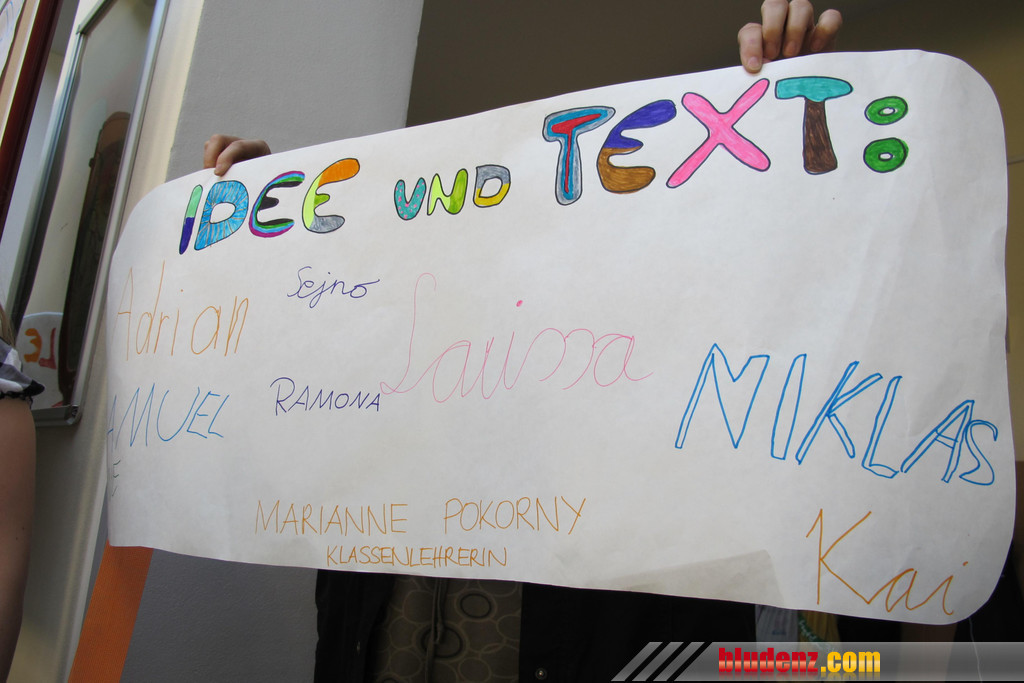 IDEE UND TEXT:
Adrian
Sejno
Larissa
AMUEL
RAMONA
NIKLAS
MARIANNE POKORNY
KLASSENLEHRERIN
Kai
bludenz.com